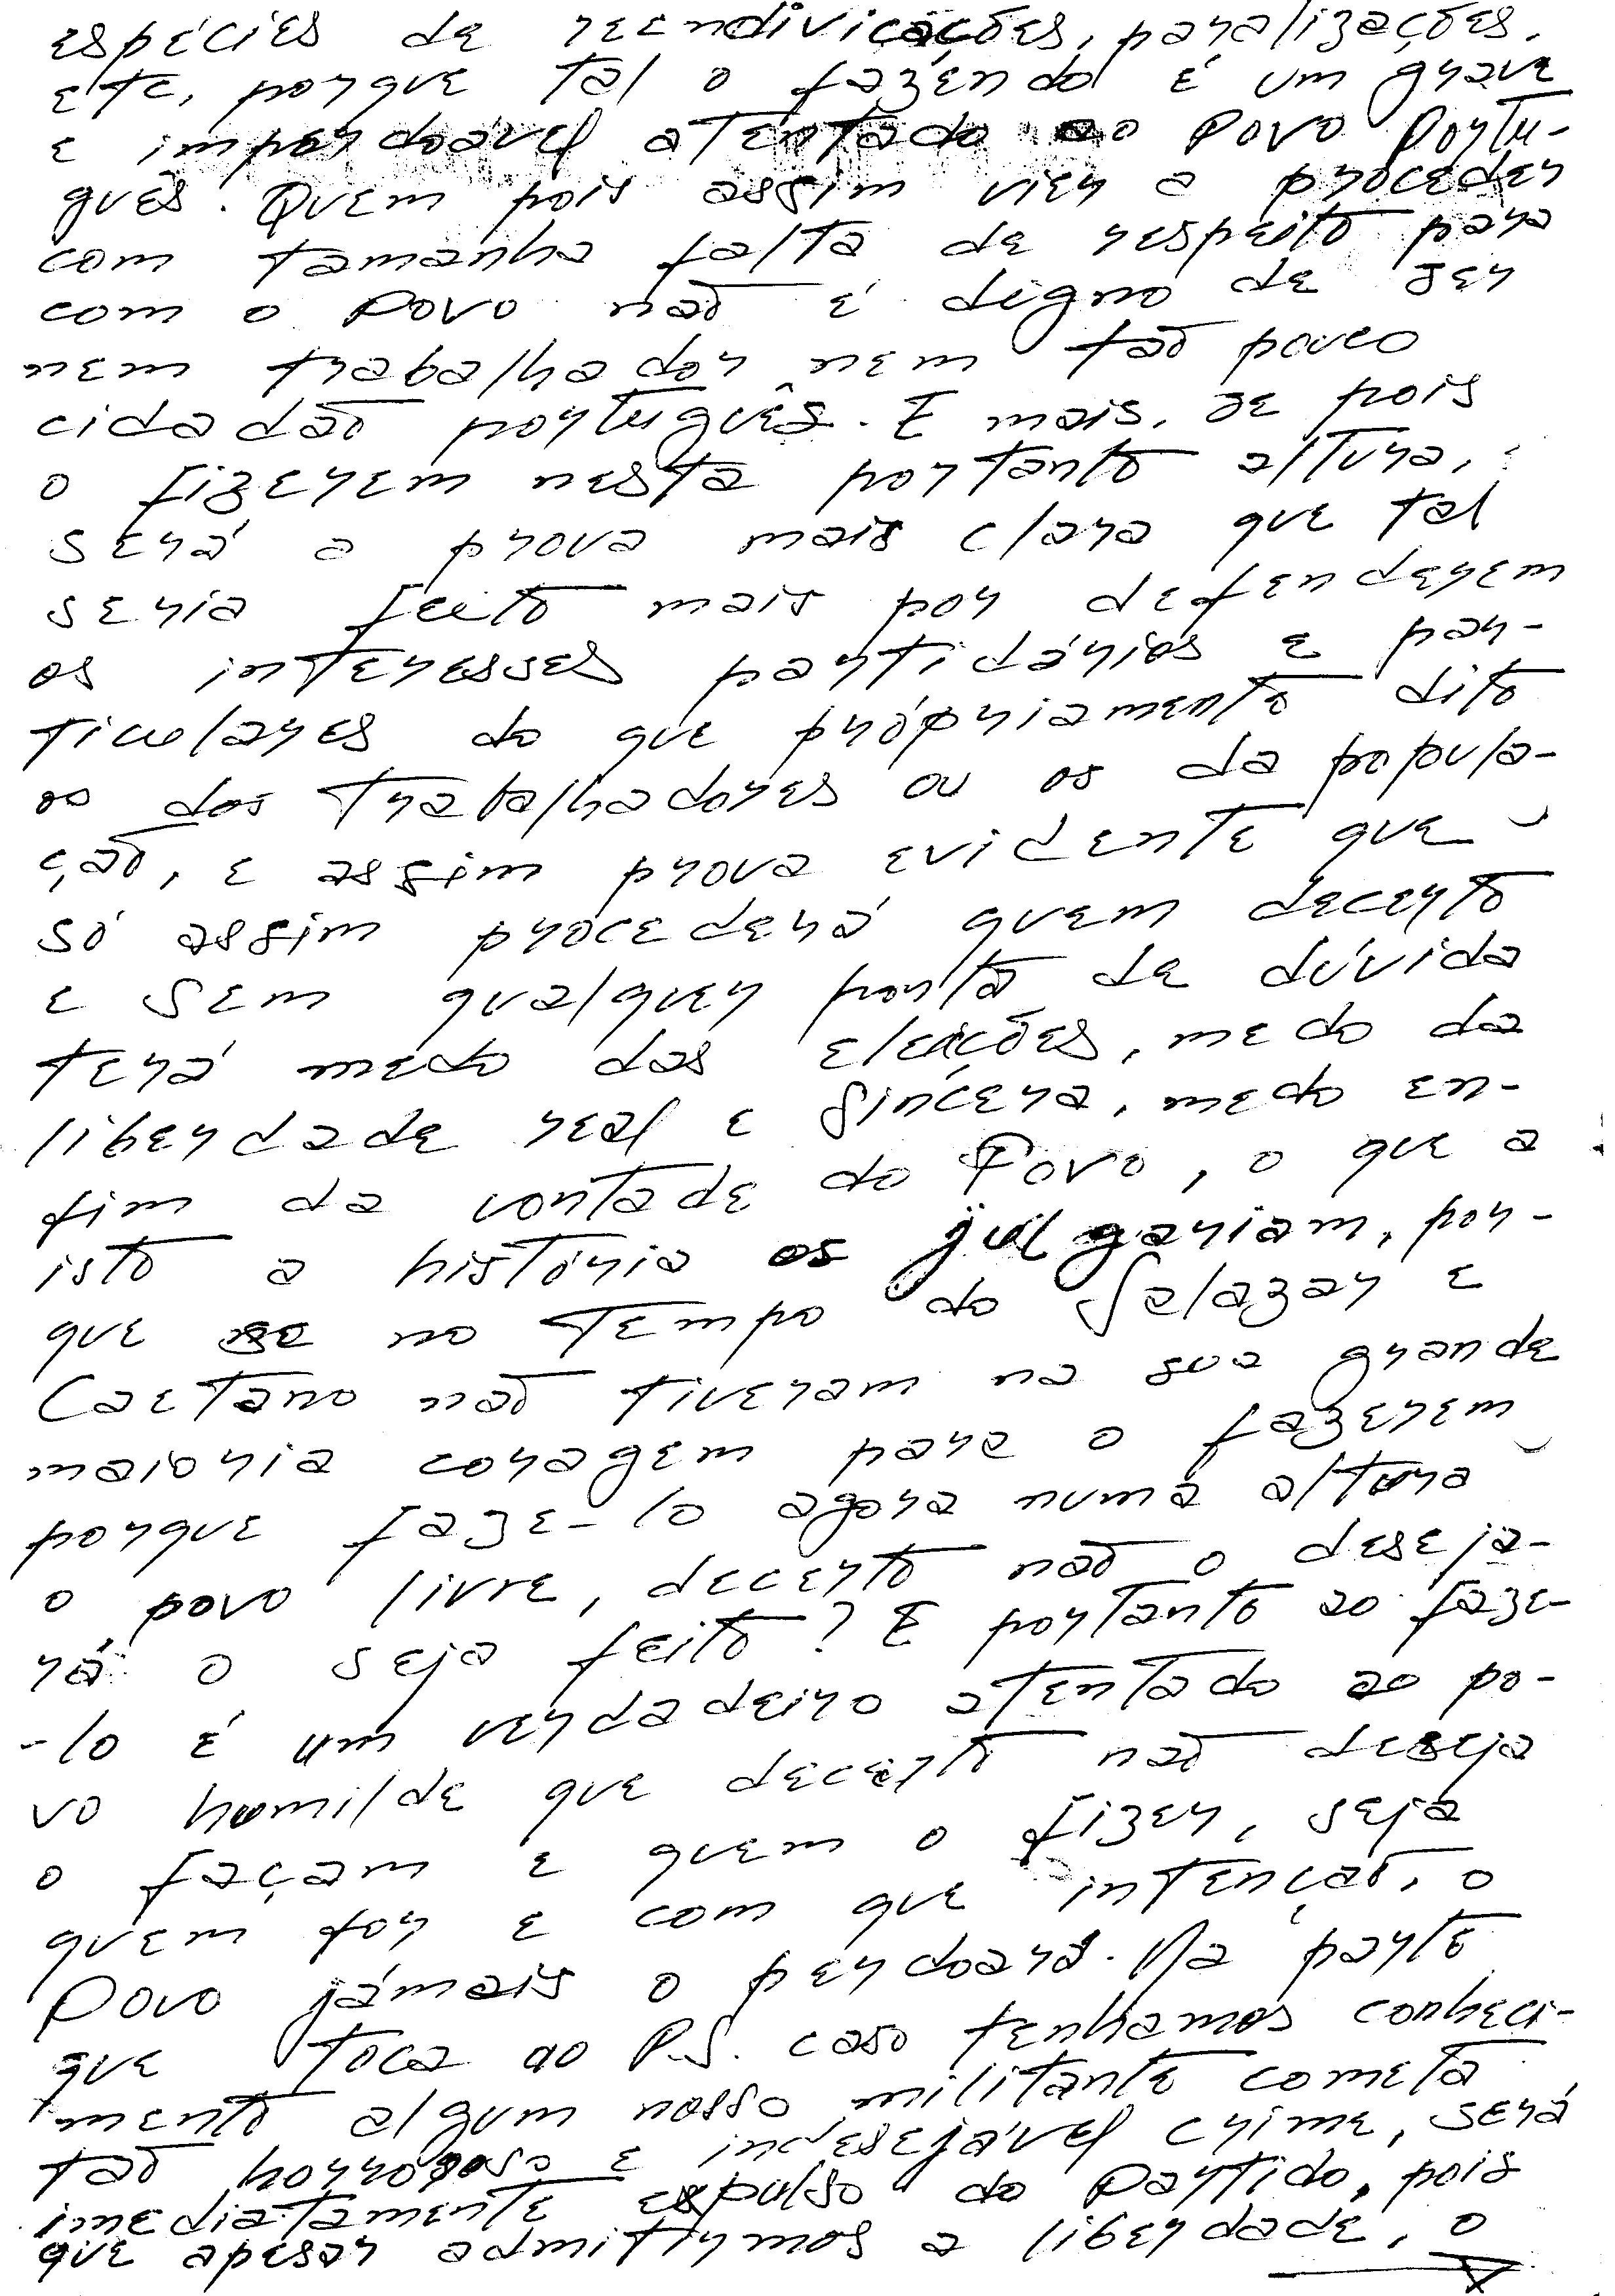 espécies de reendivicações, paralizações,
etc, porque tal o fazendo é um grave
e imperdoável atentado ao Povo Portu-
guês. Quem pois assim vier a proceder
com tamanha falta de respeito para
com o Povo não é digno de ser
nem trabalhador nem tão pouco
cidadão português. E mais, se pois
o fizerem nesta portanto altura,
será a prova mais clara que tal
seria feito mais por defenderem
os interesses partidários e par-
ticulares do que própriamente dito
os dos trabalhadores ou os da popula-
ção, e assim prova evidente que
só assim procederá quem decerto
e sem qualquer ponta de dúvida
terá medo das eleições, medo da
liberdade real e sincera, medo en-
fim da vontade do Povo, o que a
isto a história os julgariam, por-
que se no tempo do Salazar e
Caetano não tiveram na sua grande
maioria coragem para o fazerem
porque faze-lo agora numa altura
o povo livre, decerto não o deseja-
rá o seja feito? E portanto ao faze-
-lo é um verdadeiro atentado ao po-
vo humilde que decerto não deseja
o façam e quem o fizer, seja
quem for e com que intenção, o
Povo jámais o perdoará. Na parte
que toca ao P.S. caso tenhamos conheci-
mento algum nosso militante cometa
tão horroroso e indesejável crime, será
imediatamente expulso do Partido, pois
que apesar admitirmos a liberdade, o